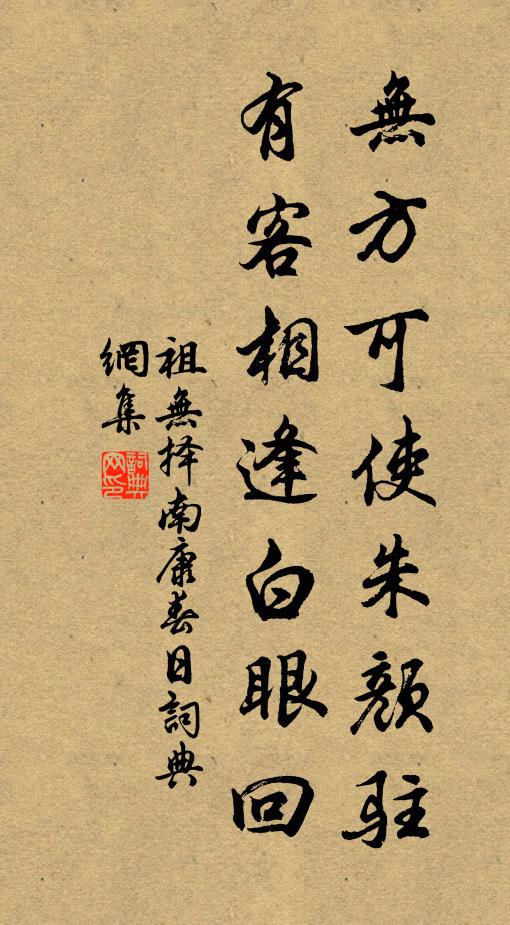 無方可使朱顏駐
有客相逢白眼回
祖無择南康春日詞典
網集
詞典
网印